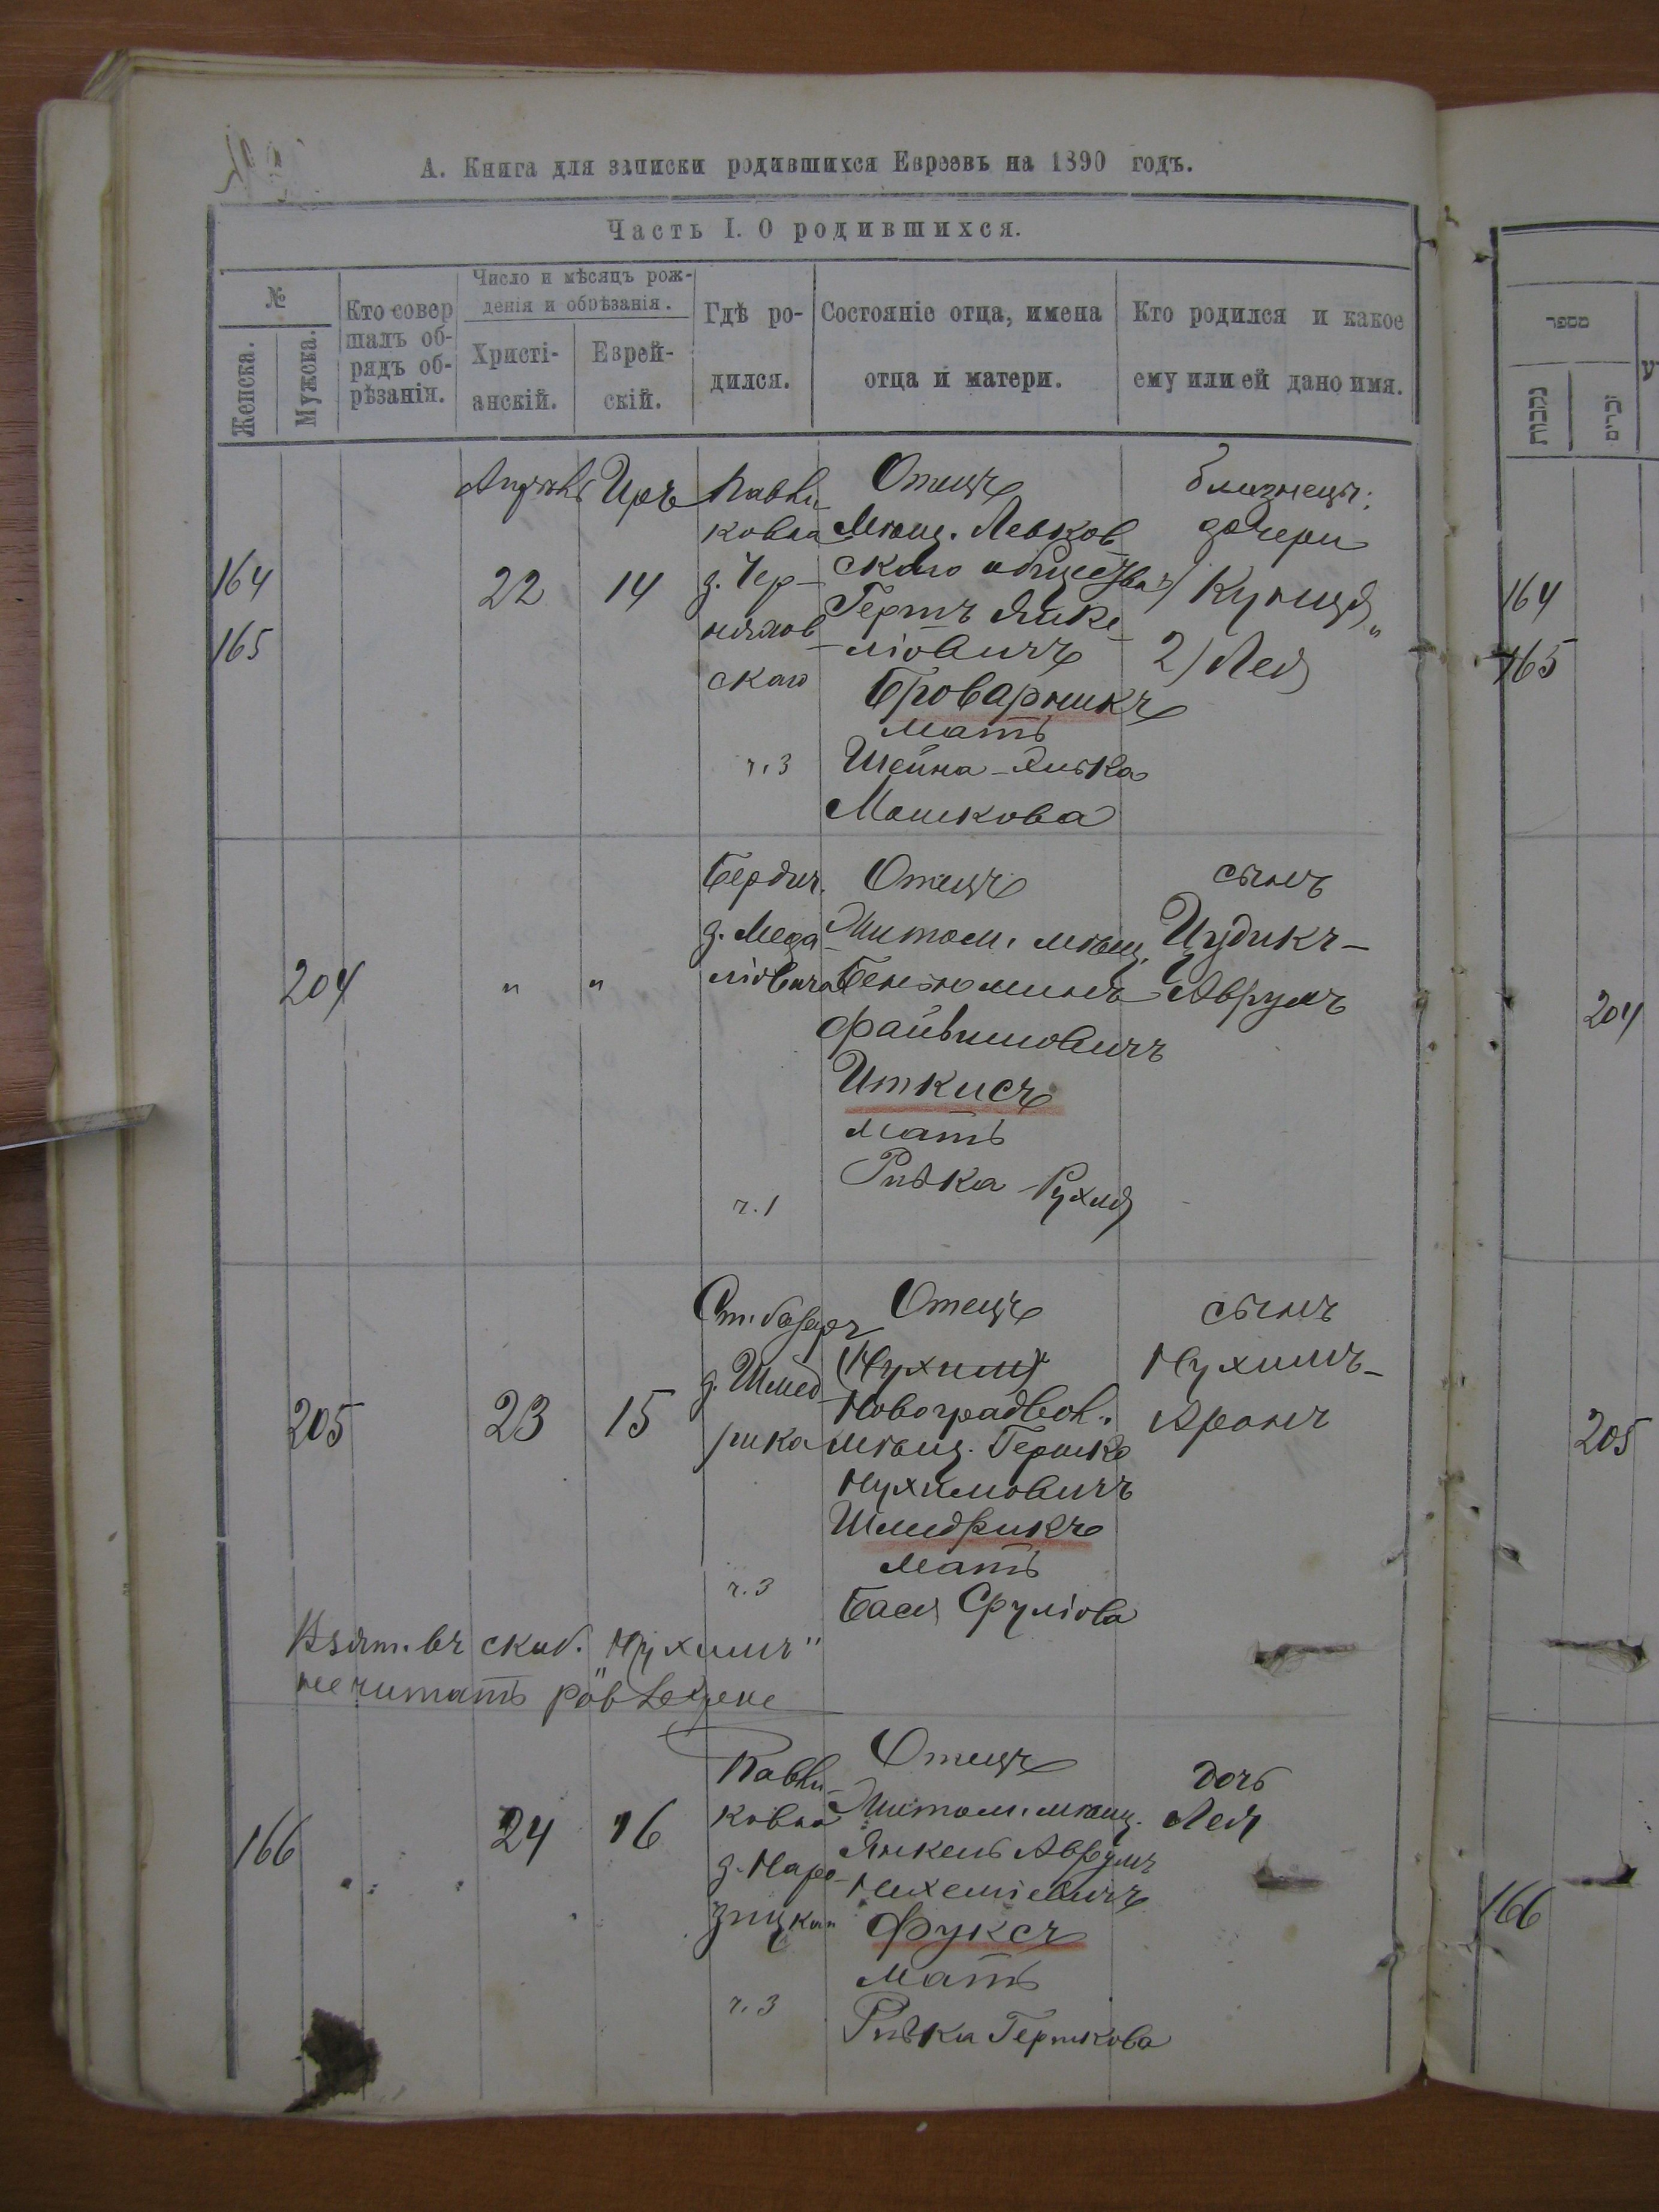 А. Книга для записки родившихся Евреевъ на 1890 годъ.
Часть I. О родившихся.
№
Женска.
Мужска.
Кто совер
шалъ об-
рядъ об-
рѣзанія.
Число и мѣсяцъ рож-
денія и обрѣзанія.
Христі-
анскій.
Еврей-
скій.
Гдѣ ро-
дился.
Состояніе отца, имена
отца и матери.
Кто родился и какое
ему или ей дано имя.
164
165
Апрѣль
22
Иръ
14
ковка
д. Чер-
няхов
скаго
ч. 3
Отецъ
Мѣщ. Левков
скаго общества
Гершъ Янке-
ліовичъ
Броварникъ
мать
Шейна-
Мошкова
близнецы:
дочери
1) Куница
2) Лея
204
"
"
Бердич.
д. Меда-
ліовича
ч. 1
Отецъ
Житом. мѣщ.
Беньюминъ
Файвишовичъ
Иткисъ
мать
Ривка-Рухля
сынъ
Иудикъ-
Аврумъ
205
23
15
Ст. базаръ
д. Шмид-
рика
ч. 3
Отецъ
(Нухимъ)
Новоградвол.
мѣщ. Гершко
Нухимовичъ
Шмидрикъ
мать
Бася Сруліова
сынъ
Нухимъ-
Аронъ
Взят. въ скоб. "Нухимъ"
не читать
166
24
16
ковка
д. Наро-
Отецъ
Житом. мѣщ.
Янкель Аврумъ
Нехеміевичъ
Фуксъ
мать
ч. 3
Ривка Гершкова
дочь
Лея
מספר
נקבות
זכרים
164
165
204
205
166